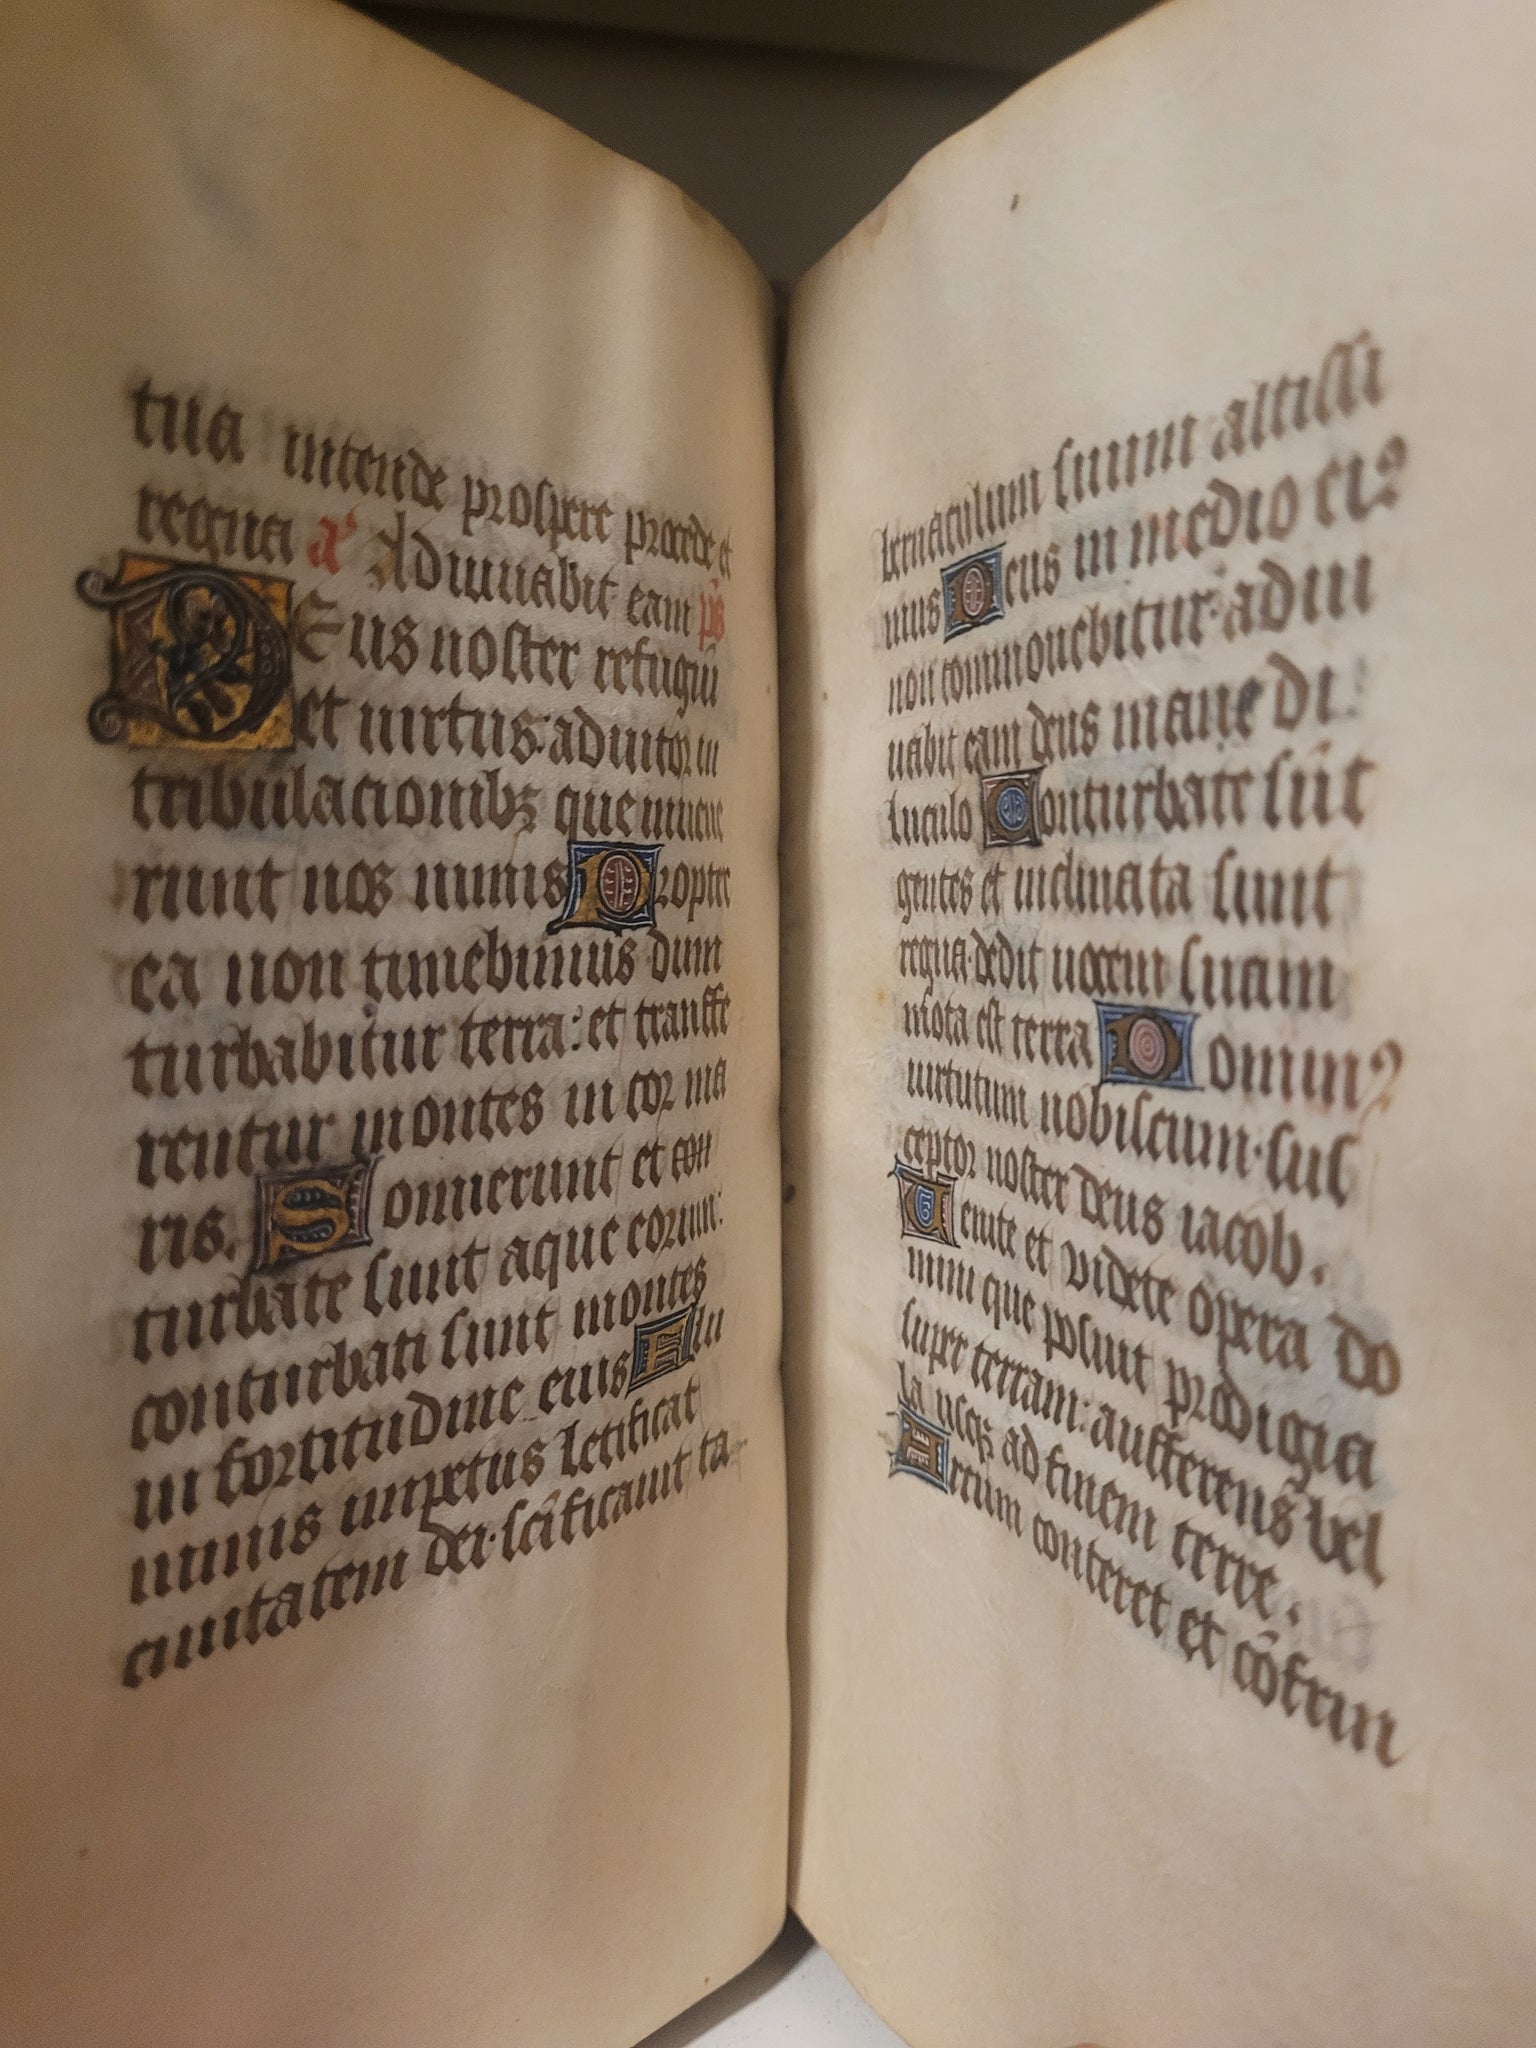 tua intende prospere procede et
regna a͛ Adiuuabit eam p̄s
DEus noster refugiū
et uirtus: adiutor in
tribulacionibꝫ que inuene
runt nos nimis Propter
ea non timebimus dum
turbabitur terra: et transfe
rentur montes in cor ma
ris. Sonuerunt et con
turbate sunt aque eorum:
conturbati sunt montes
in fortitudine eius Flu
minis impetus letificat
ciuitatem dei· sc̄ificauit ta
bernaculum suum altissi
mus Deus in medio eiꝰ
non commouebitur· adiu
uabit eam deus mane di
luculo Conturbate sūt
gentes et inclinata sunt
regna· dedit uocem suam
mota est terra Dominꝰ
uirtutum nobiscum· sus
ceptor noster deus iacob.
Uenite et videte opera do
mini que posuit prodigia
super terram: aufferens bel
la usqꝫ ad finem terre.
Arcum conteret et cōfrin